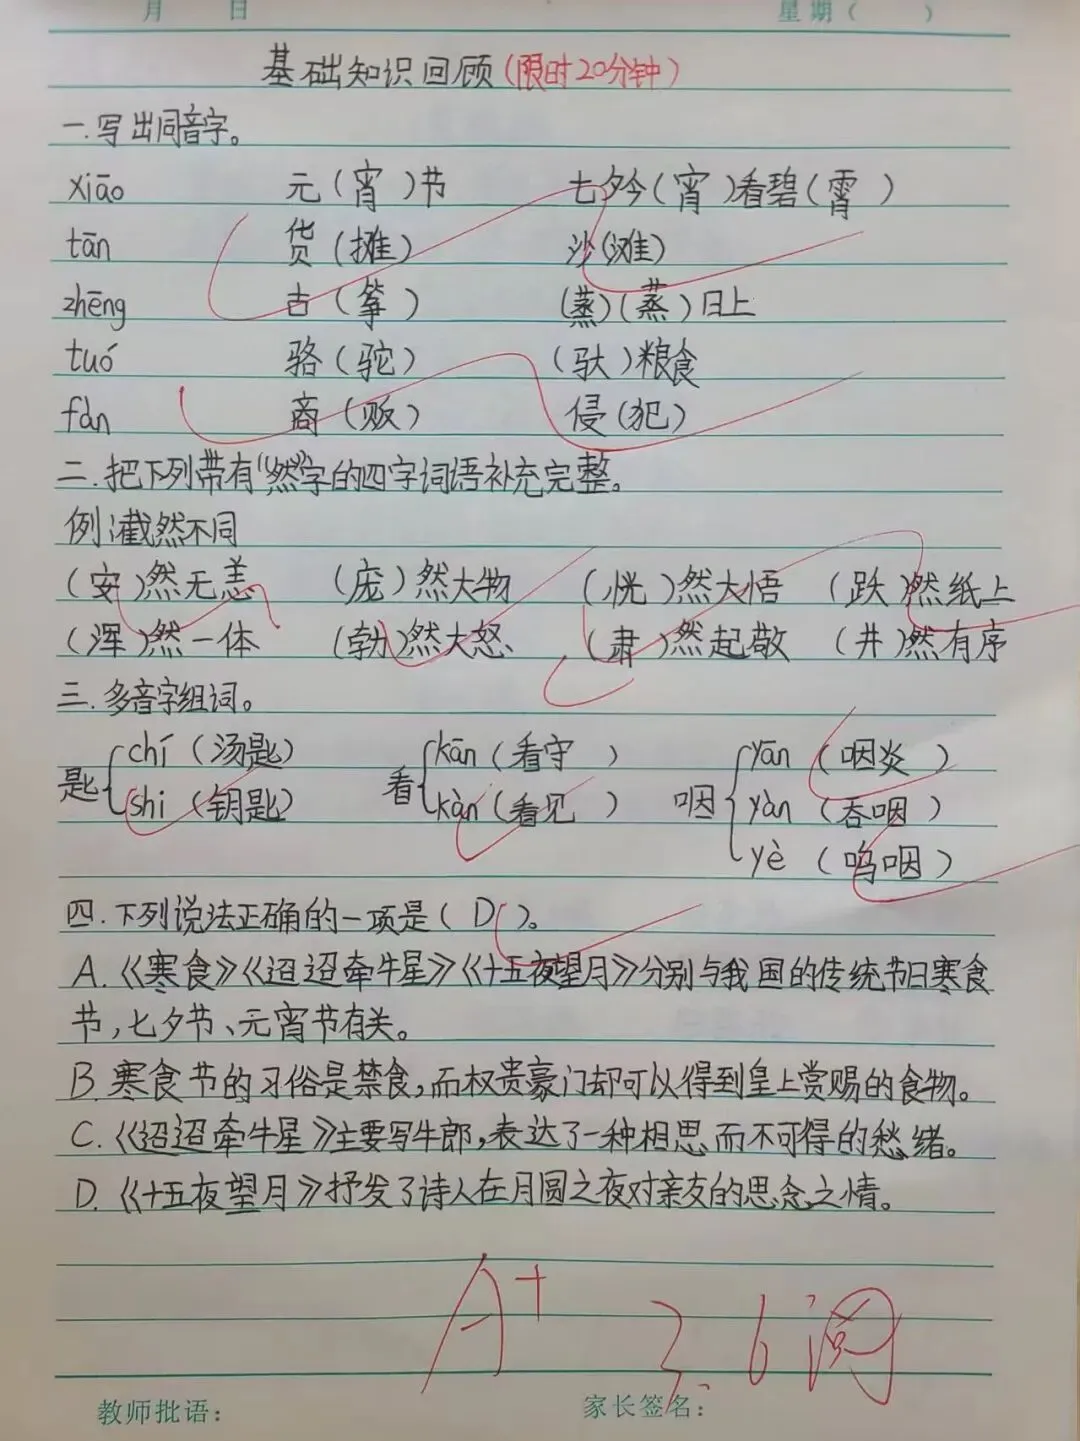 月 日 星期( )
基础知识回顾(限时20分钟)
一.写出同音字。
xiāo 元(宵)节 七夕今(宵)看碧(霄)
tān 货(摊) 沙(滩)
zhēng 古(筝) (蒸)(蒸)日上
tuó 骆(驼) (驮)粮食
fàn 商(贩) 侵(犯)
二.把下列带有“然”字的四字词语补充完整。
例:截然不同
(安)然无恙 (庞)然大物 (恍)然大悟 (跃)然纸上
(浑)然一体 (勃)然大怒 (肃)然起敬 (井)然有序
三.多音字组词。
匙 chí(汤匙) 看 kān(看守) 咽 yān(咽炎)
shi(钥匙) kàn(看见) yàn(吞咽)
yè(呜咽)
四.下列说法正确的一项是(D)。
A.《寒食》《迢迢牵牛星》《十五夜望月》分别与我国的传统节日寒食
节,七夕节、元宵节有关。
B.寒食节的习俗是禁食,而权贵豪门却可以得到皇上赏赐的食物。
C.《迢迢牵牛星》主要写牛郎,表达了一种相思而不可得的愁绪。
D.《十五夜望月》抒发了诗人在月圆之夜对亲友的思念之情。
A+ 3.6阅
教师批语: 家长签名: